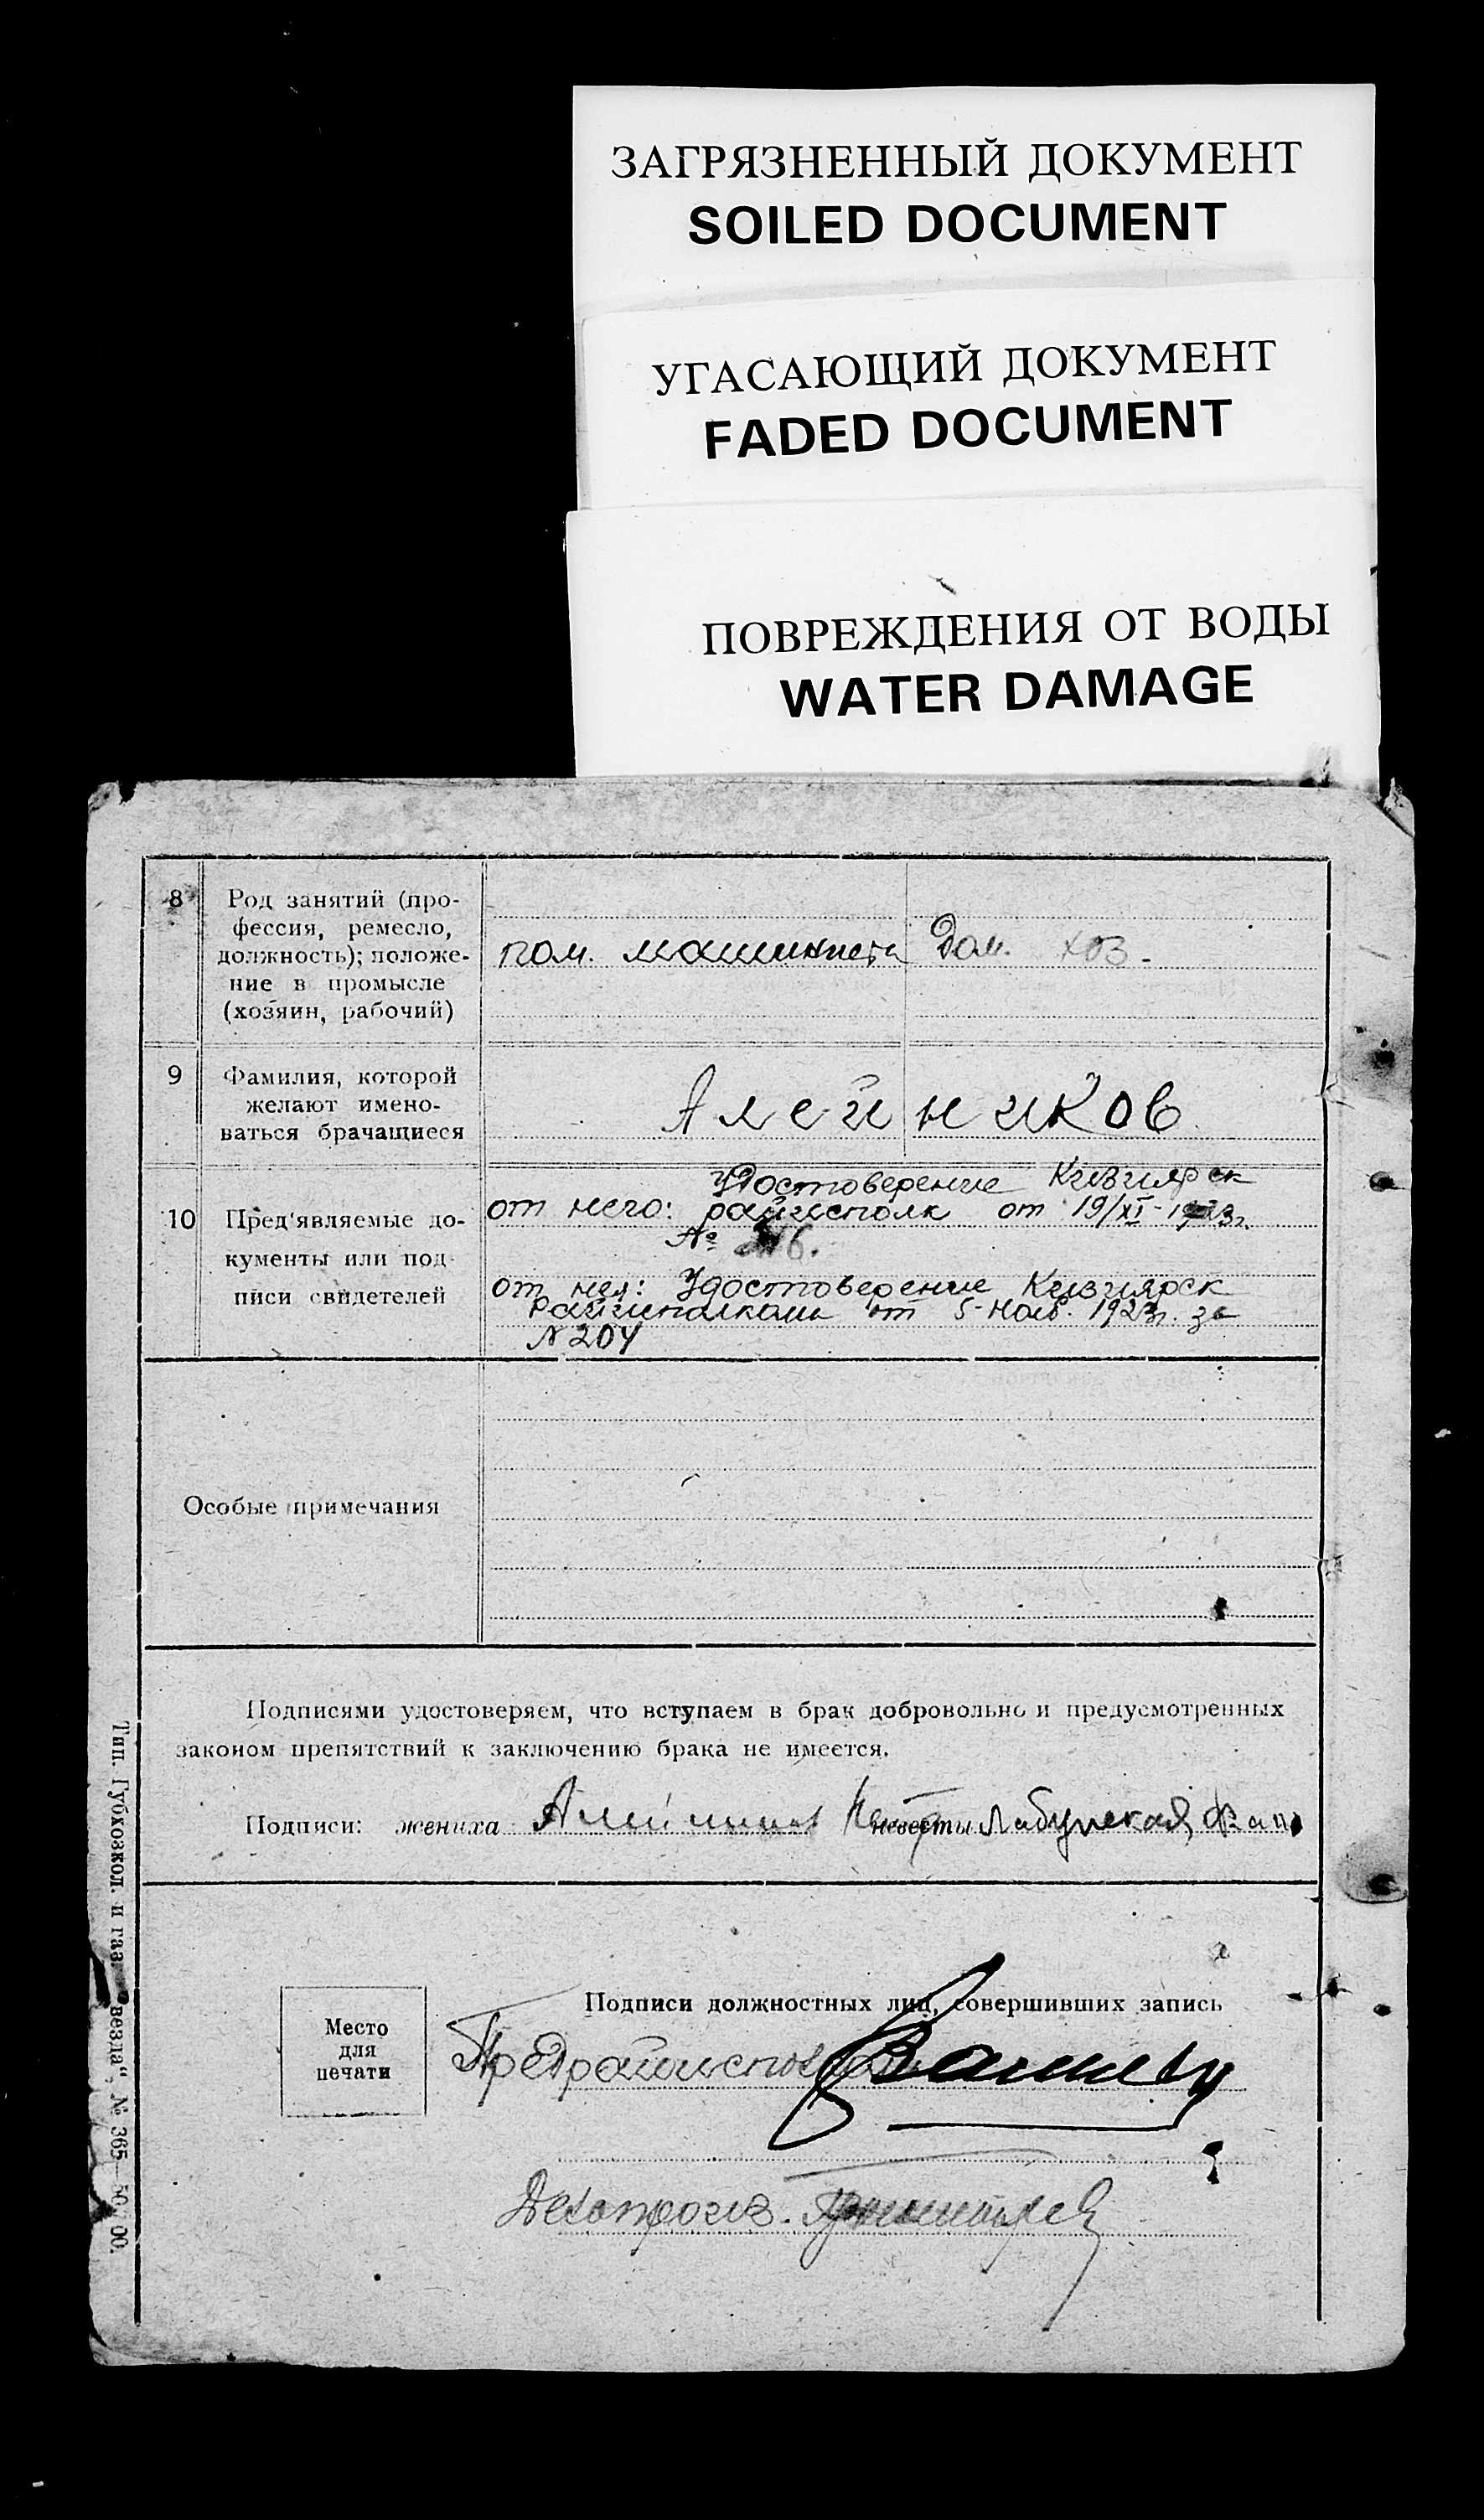 ЗАГРЯЗНЕННЫЙ ДОКУМЕНТ
SOILED DOCUMENT
УГАСАЮЩИЙ ДОКУМЕНТ
FADED DOCUMENT
ПОВРЕЖДЕНИЯ ОТ ВОДЫ
WATER DAMAGE
8
Род занятий (про-
фессия, ремесло,
должность); положе-
ние в промысле
(хозяин, рабочий)
пом. машиниста
Дом. хоз.
9
Фамилия, которой
желают имено-
ваться брачащиеся
Алейников
10
Пред'являемые до-
кументы или под-
писи свидетелей
Удостоверение Кизиярск
от него: райисполк от 19/XI-1923г.
№
от нея: Удостоверение Кизиярск
Райисполкома от 5-нояб. 1923г. за
№ 204
Особые примечания
Подписями удостоверяем, что вступаем в брак добровольно и предусмотренных
законом препятствий к заключению брака не имеется.
Подписи: жениха невесты Лабунская
Подписи должностных лиц, совершивших запись
Место
для
печати
Предрайисполкома
Делопроиз.
Тип. Губхозкол. и газ. везда", № 365